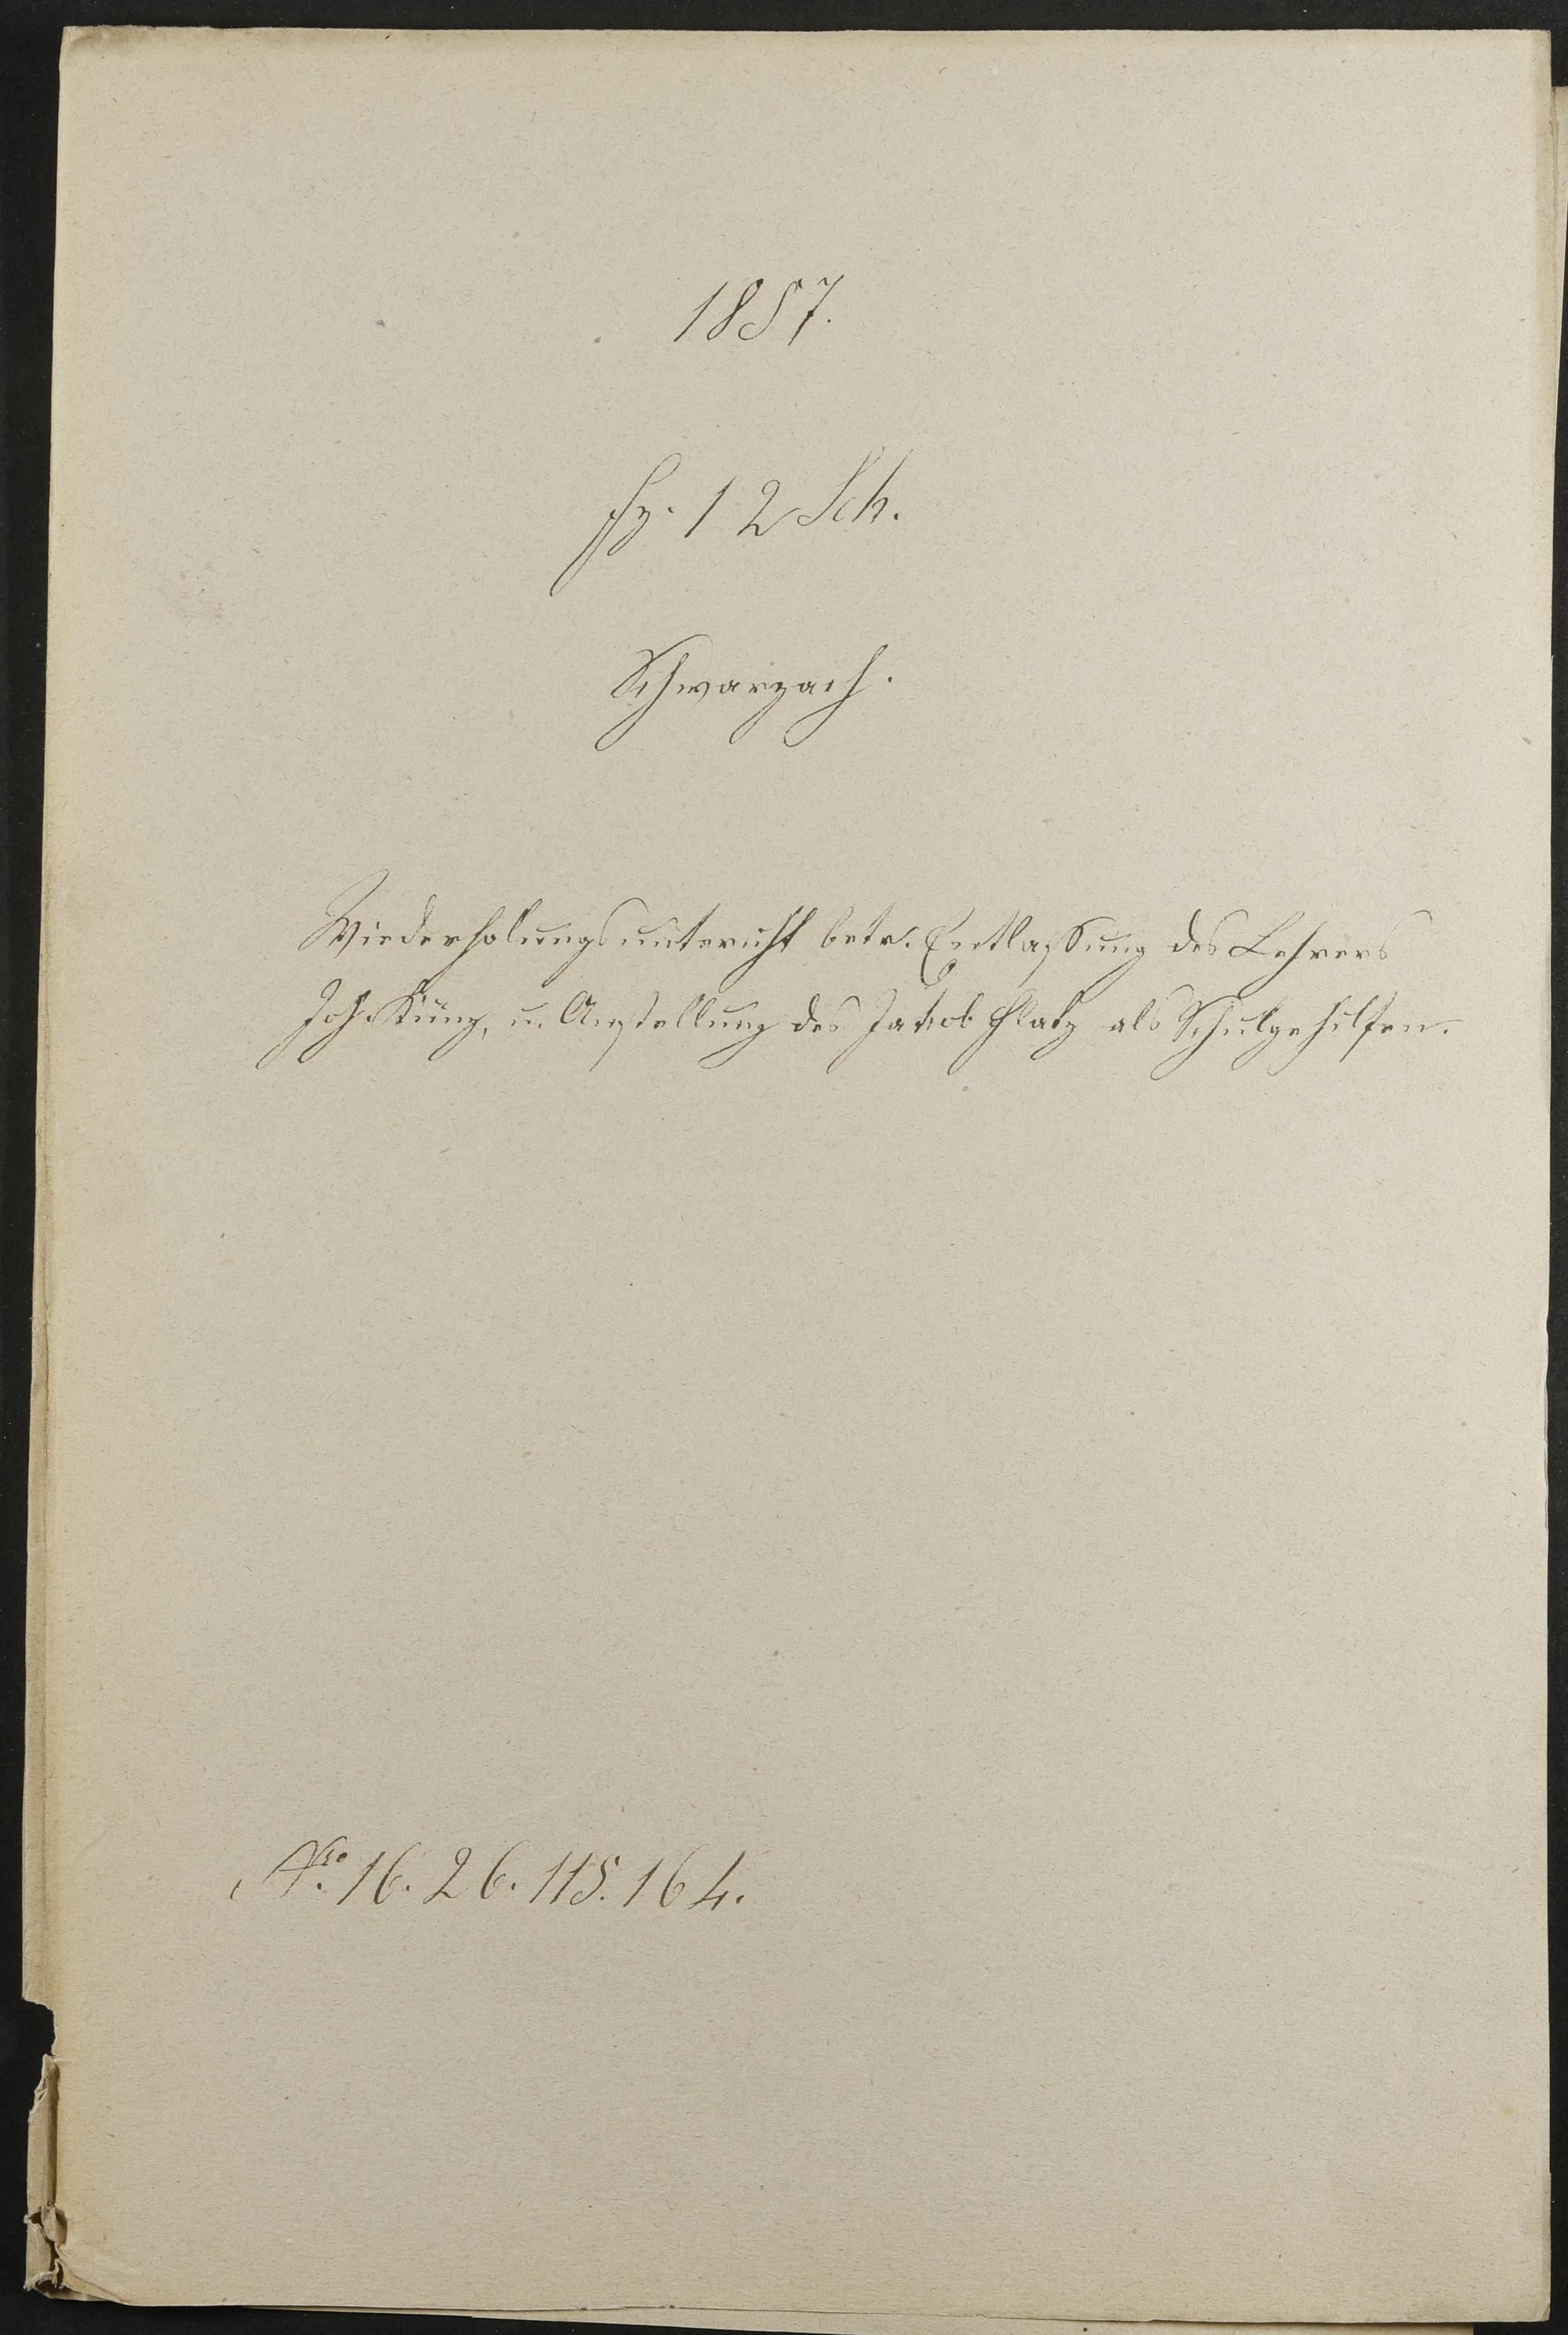 1857.
Fz. 12 Sch.
Schwarzach.
Wiederholungsunterricht betr. Entlassung des Lehrers
Joh. Künz, u. Anstellung des Jakob Flatz als Schulgehilfen.
Nro. 16. 26. 115. 164.